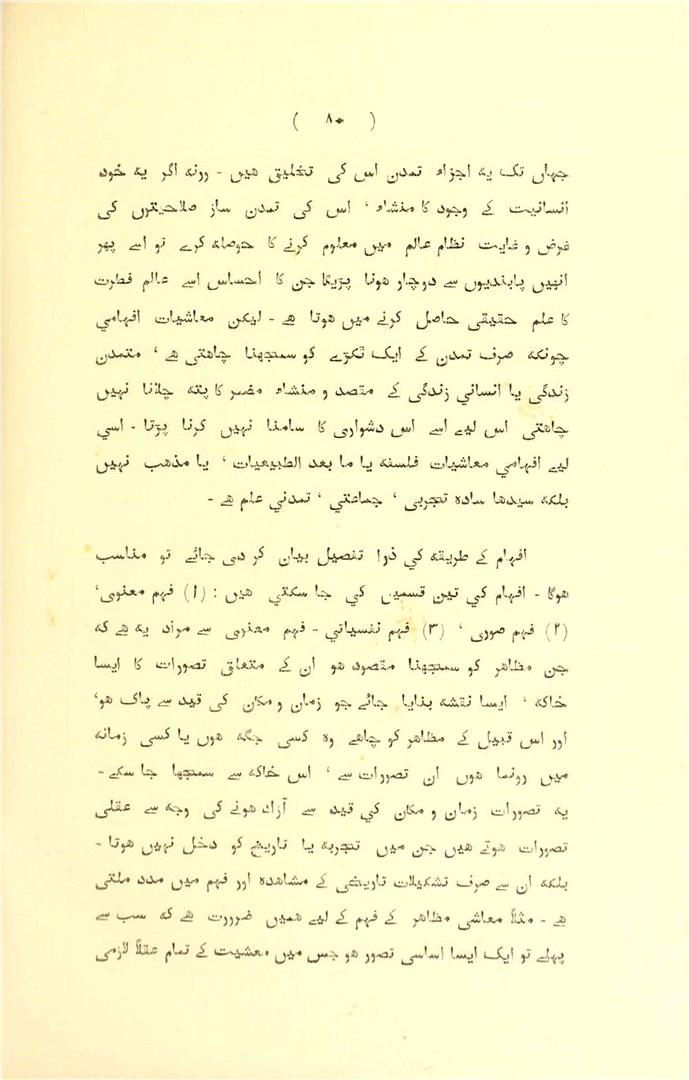 ( ۸۰ )
جہاں تک یہ اجزاء تمدن اس کی تخلیق ھیں - ورنہ اگر یہ خود
انسانیت کے وجود کا منشاء ، اس کی تمدن ساز صلاحیتوں کی
غرض و غایت نظام عالم میں معلوم کرنے کا حوصلہ کرے تو اسے پھر
انہیں پابندیوں سے دوچار ہونا پڑیگا جن کا احساس اسے عالم فطرت
کا علم حقیقی حاصل کرنے میں ھوتا ھے - لیکن معاشیات افہامي
چونکہ صرف تمدن کے ایک ٹکڑے کو سمجھنا چاھتی ھے ، متمدن
زندگی یا انسانی زندگی کے مقصد و منشاء مضمر کا پتہ چلانا نہیں
چاھتی اس لیے اسے اس دشواری کا سامنا نہیں کرنا پڑتا - اسي
لیے افہامی معاشیات فلسفہ یا ما بعد الطبیعیات ، یا مذھب نہیں
بلکہ سیدھا سادہ تجربی ، جماعتی ، تمدني علم ھے -
افہام کے طریقہ کي ذرا تفصیل بیان کر دی جائے تو مناسب
ھوگا - افہام کی تین قسمیں کي جا سکتي ھیں : (۱) فہم معنوی،
(۲) فہم صوری ، (۳) فہم نفسیاتی - فہم معنوی سے مراد یہ ھے کہ
جن مظاھر کو سمجھنا مقصود ھو ان کے متعلق تصورات کا ایسا
خاکہ ، ایسا نقشہ بنایا جائے جو زمان و مکان کی قید سے پاک ھو،
اور اس قبیل کے مظاھر کو چاھے وہ کسی جگہ ھوں یا کسی زمانہ
میں رونما ھوں ان تصورات سے ، اس خاکہ سے سمجھا جا سکے -
یہ تصورات زمان و مکان کي قید سے آزاد ھونے کی وجہ سے عقلی
تصورات ھوتے ھیں جن میں تجربہ یا تاریخ کو دخل نہیں ھوتا -
بلکہ ان سے صرف تشکیلات تاریخی کے مشاھدہ اور فہم میں مدد ملتی
ھے - مثلاً معاشی مظاھر کے فہم کے لیے ھمیں ضرورت ھے کہ سب سے
پہلے تو ایک ایسا اساسی تصور ھو جس میں معشیت کے تمام عقلاً لازمی